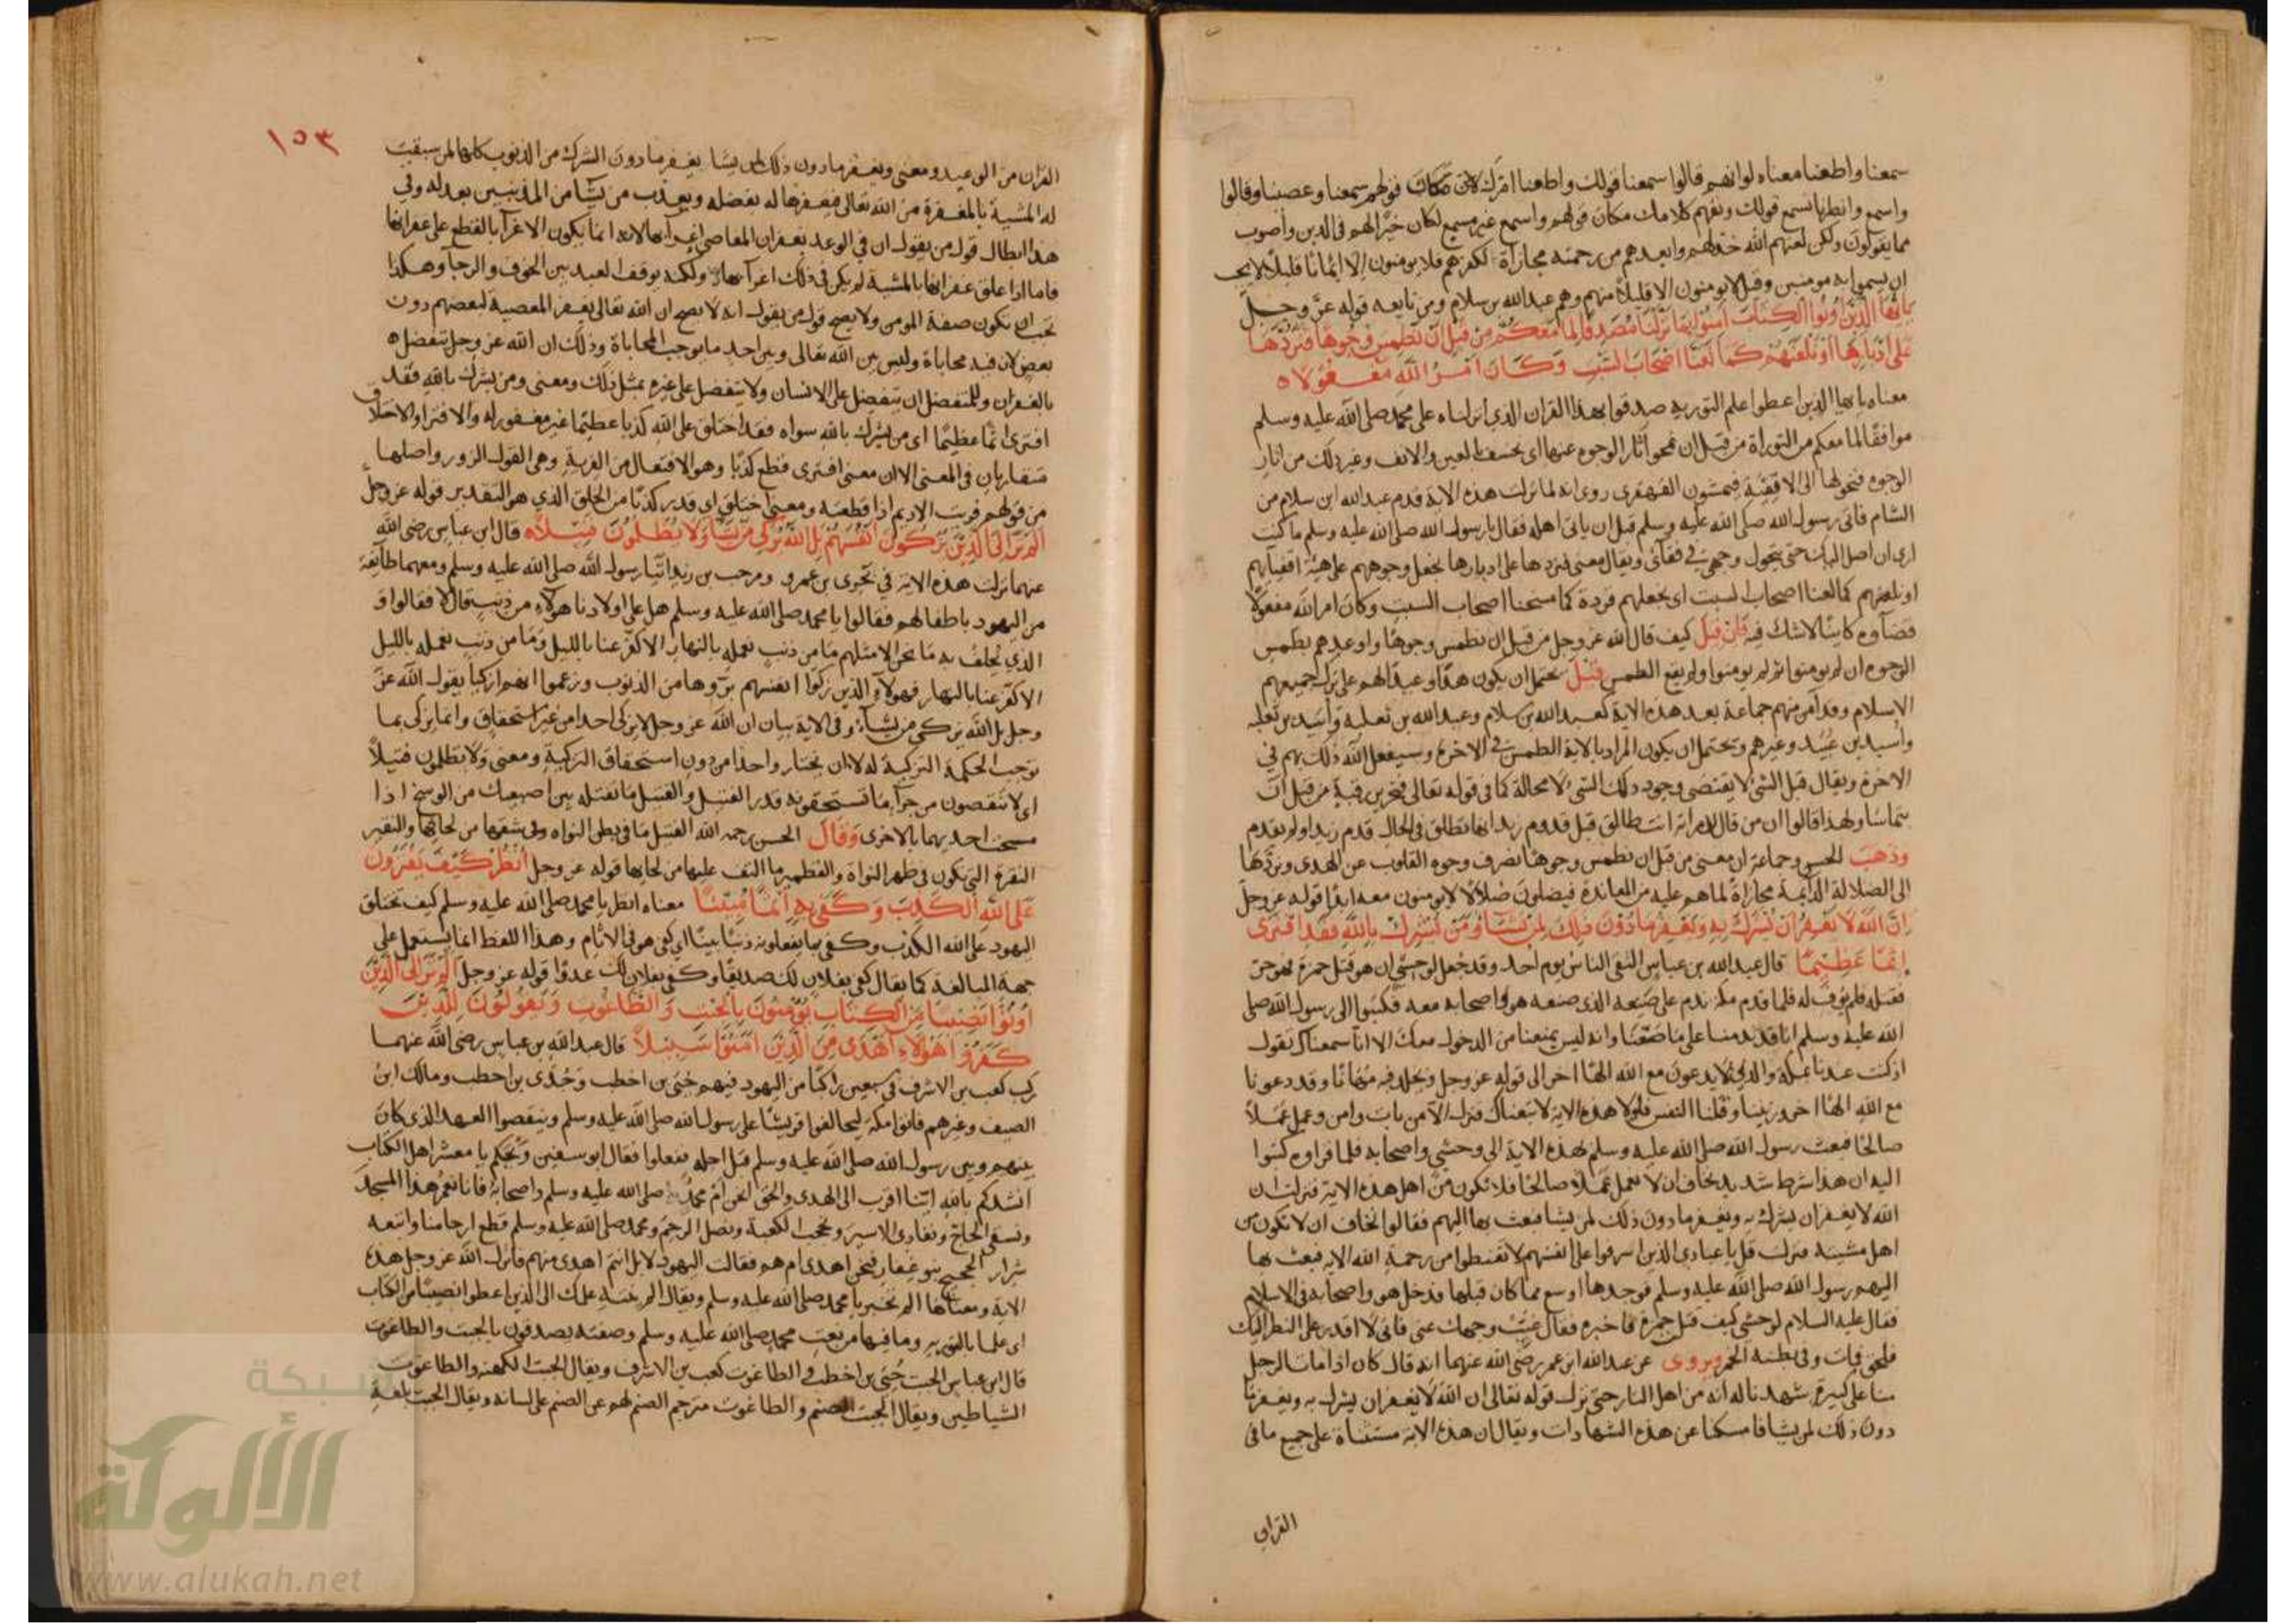 سمعنا واطعنا معناه لو انهم قالوا سمعنا قولك واطعنا امرك مكان قولهم سمعنا وعصينا وقالوا
واسمع وانظرنا نسمع قولك ونفهم كلامك مكان قولهم واسمع غير مسمع لكان خيرا لهم في الدين وأصوب
مما يقولون ولكن لعنهم الله خذلهم وابعدهم من رحمته مجازاة لكفرهم فلا يومنون الا ايمانا قليلا لا يجب
ان يسموا به مومنين وقيل لا يومنون الا قليلا منهم وهم عبد الله بن سلام ومن تابعه قوله عز وجل
يا ايها الذين اوتوا الكتاب امنوا بما نزلنا مصدقا لما معكم من قبل ان نطمس وجوها فنردها
على ادبارها او نلعنهم كما لعنا اصحاب السبت وكان امر الله مفعولا ه
معناه يا ايها الذين اعطوا علم التورية صدقوا بهذا القران الذي انزلناه على محمد صلى الله عليه وسلم
موافقا لما معكم من التوراة من قبل ان نمحو آثار الوجوه عنها اى نخسف بالعين والانف وغير ذلك من اثار
الوجوه فنحولها الى الاقفية فيمشون القهقرى روى انه لما نزلت هذه الاية قدم عبد الله ابن سلام من
الشام فاتى رسول الله صلى الله عليه وسلم قبل ان ياتى اهله فقال يا رسول الله صلى الله عليه وسلم ما كنت
ارى ان اصل اليك حتى يتحول وجهي في قفائى ويقال معنى فنردها على ادبارها نجعل وجوههم على هيئة اقفيتهم
او نلعنهم كما لعنا اصحاب السبت اى نجعلهم قردة كما مسخنا اصحاب السبت وكان امر الله مفعولا
قضاوه كاينا لا شك فيه فان قيل كيف قال الله عز وجل من قبل ان نطمس وجوها واوعدهم بطمس
الوجوه ان لم يومنوا ثم لم يومنوا ولم يقع الطمس قيل يحتمل ان يكون هذا وعيدا لهم على ترك جميعهم
الاسلام وقد آمن منهم جماعة بعد هذه الاية كعبد الله بن سلام وعبد الله بن ثعلبة وأسيد بن ثعلبه
وأسيد بن عبيد وغيرهم ويحتمل ان يكون المراد بالاية الطمس في الاخرة وسيفعل الله ذلك بهم في
الاخرة ويقال قبل الشي لا يقتضى وجود ذلك الشي لا محالة كما في قوله تعالى فتحرير رقبة من قبل ان
يتماسا ولهذا قالوا ان من قال لامراته انت طالق قبل قدوم زيد انها تطلق في الحال قدم زيد او لم يقدم
وذهب الحسن وجماعة ان معنى من قبل ان نطمس وجوها نصرف وجوه القلوب عن الهدى ونردها
الى الضلالة الدائمة مجازاة لما هم عليه من المعاندة فيضلون ضلالا لا يومنون معه ابدا قوله عز وجل
ان الله لا يغفر ان يشرك به ويغفر ما دون ذلك لمن يشا ومن يشرك بالله فقد افترى
إثما عظيما قال عبد الله بن عباس التقى الناس يوم احد وقد جعل لوحشي ان هو قتل حمزة فهو حر
فقتله فلم يوف له فلما قدم مكة ندم على صنيعه الذى صنعه هو واصحابه معه فكتبوا الى رسول الله صلى
الله عليه وسلم انا قد ندمنا على ما صنعنا وانه ليس يمنعنا من الدخول معك الا انا سمعناك تقول
اذ كنت عندنا بمكة والذين لا يدعون مع الله الها اخر الى قوله عز وجل ويخلد فيه مهانا وقد دعونا
مع الله الها اخر وزنينا وقتلنا النفس فلولا هذه الاية لاتبعناك فنزل الا من تاب وامن وعمل عملا
صالحا فبعث رسول الله صلى الله عليه وسلم بهذه الاية الى وحشي واصحابه فلما قراوه كتبوا
اليه ان هذا شرط شديد نخاف ان لا نعمل عملا صالحا فلا نكون من اهل هذه الاية فنزلت ان
الله لا يغفر ان يشرك به ويغفر ما دون ذلك لمن يشا فبعث بها اليهم فقالوا نخاف ان لا نكون من
اهل مشيته فنزلت قل يا عبادي الذين اسرفوا على انفسهم لا تقنطوا من رحمة الله الاية فبعث بها
اليهم رسول الله صلى الله عليه وسلم فوجدوها اوسع مما كان قبلها فدخل هو واصحابه في الاسلام
فقال عليه السلام لوحشي كيف قتلت حمزة فاخبره فقال غيب وجهك عني فاني لا اقدر على النظر اليك
فلحق فمات وفي بطنه الخمر ويروى عن عبد الله ابن عمر رضي الله عنهما انه قال كان اذا مات الرجل
منا على كبيرة شهدنا له انه من اهل النار حتى نزل قوله تعالى ان الله لا يغفر ان يشرك به ويغفر ما
دون ذلك لمن يشا فامسكنا عن هذه الشهادات ويقال ان هذه الاية مستثناة على جميع ما في
القران
١٥٣
القران من الوعيد ومعنى ويغفر ما دون ذلك لمن يشا يغفر ما دون الشرك من الذنوب كلها لمن سبقت
له المشية بالمغفرة من الله تعالى فيغفرها له بفضله ويعذب من يشا من المذنبين بعدله وفي
هذا ابطال قول من يقول ان في الوعد بغفران المعاصي اغرآ بها لانه انما يكون الاغرآ بالقطع على غفرانها
فاما اذا علق غفرانها بالمشية لم يكن في ذلك اغرآ بها ولكنه يوقف العبد بين الخوف والرجآ وهكذا
يجب ان يكون صفة المومن ولا يصح قول من يقول انه لا يصح ان الله تعالى يغفر المعصية لبعضهم دون
بعض لان فيه محاباة وليس بين الله تعالى وبين احد ما يوجب المحاباة وذلك ان الله عز وجل يتفضل ه
بالغفران وللمتفضل ان يتفضل على الانسان ولا يتفضل على غيره بمثل ذلك ومعنى ومن يشرك بالله فقد
افترى اثما عظيما اى من يشرك بالله سواه فقد اختلق على الله كذبا عظيما غير مغفور له والافترا والاختلاق
متقاربان في المعنى الا ان معنى افترى قطع كذبا وهو الافتعال من الفرية وهى القول الزور واصلها
من قولهم فريت الاديم اذا قطعته ومعنى اختلق اى قدر كذبا من الخلق الذي هو التقدير قوله عز وجل
الم تر الى الذين يزكون انفسهم بل الله يزكي من يشا ولا يظلمون فتيلا ه قال ابن عباس رضي الله
عنهما نزلت هذه الاية في بحرى بن عمرو ومرحب بن زيد اتيا رسول الله صلى الله عليه وسلم ومعهما طائفة
من اليهود باطفالهم فقالوا يا محمد صلى الله عليه وسلم هل على اولادنا هولآء من ذنب قال لا فقالوا و
الذي نحلف به ما نحن الا مثلهم ما من ذنب نعمله بالنهار الا كفر عنا بالليل وما من ذنب نعمله بالليل
الا كفر عنا بالنهار فهولآء الذين زكوا انفسهم برؤها من الذنوب وزعموا انهم ازكيا يقول الله عز
وجل بل الله يزكى من يشآء وفي الاية بيان ان الله عز وجل لا يزكى احدا من غير استحقاق وانما يزكى بما
توجب الحكمة التزكية له لا ان يختار واحدا من دون استحقاق التزكية ومعنى ولا يظلمون فتيلا
اى لا ينقصون من جزآء ما تستحقونه قدر الفتيل والفتيل ما تفتله بين اصبعيك من الوسخ اذا
مسحت احديهما بالاخرى وقال الحسن رحمه الله الفتيل ما في بطن النواه وفي شقها من لحائها والنقير
النقرة التي تكون في ظهر النواة والقطمير ما التف عليها من لحايها قوله عز وجل انظر كيف يفترون
على الله الكذب وكفى به اثما مبينا معناه انظر يا محمد صلى الله عليه وسلم كيف تختلق
اليهود على الله الكذب وكفى بما يفعلونه ذنبا بينا اى كفى هو في الاثام وهذا اللفظ انما يستعمل على
جهة المبالغة كما يقال كفى بفلان لك صديقا وكفى بفلان لك عدوا قوله عز وجل الم تر الى الذين
اوتوا نصيبا من الكتاب يؤمنون بالجبت والطاغوت ويقولون للذين
كفروا هؤلاء اهدى من الذين امنوا سبيلا قال عبد الله بن عباس رضي الله عنهما
ركب كعب بن الاشرف في سبعين راكبا من اليهود فيهم حيى بن اخطب وجدى بن اخطب ومالك ابن
الصيف وغيرهم فاتوا مكة ليحالفوا قريشا على رسول الله صلى الله عليه وسلم وينقضوا العهد الذي كان
بينهم وبين رسول الله صلى الله عليه وسلم قبل اجله ففعلوا فقال ابو سفين ونحكم يا معشر اهل الكتاب
انشدكم بالله اينا اقرب الى الهدى والحق نحن ام محمد صلى الله عليه وسلم واصحابه فانا نعمر هذا المسجد
ونسقى الحاج ونفادى الاسير ونحجب الكعبة ونصل الرحم ومحمد صلى الله عليه وسلم قطع ارحامنا واتبعه
شرار الحجيج بنو غفار فنحن اهدى ام هم فقالت اليهود لا بل انتم اهدى منهم فانزل الله عز وجل هذه
الاية ومعناها الم تخبر يا محمد صلى الله عليه وسلم ويقال الم ينته علمك الى الذين اعطوا نصيبا من الكتاب
اى علما بالتورية وما فيها من نعت محمد صلى الله عليه وسلم وصفته يصدقون بالجبت والطاغوت
قال ابن عباس الجبت حيى بن اخطب والطاغوت كعب بن الاشرف ويقال الجبت الكهنة والطاغوت
الشياطين ويقال الجبت الصنم والطاغوت مترجم الصنم لهم عن الصنم على لسانه ويقال الجبت بلغة
شبكة
الألوكة
www.alukah.net